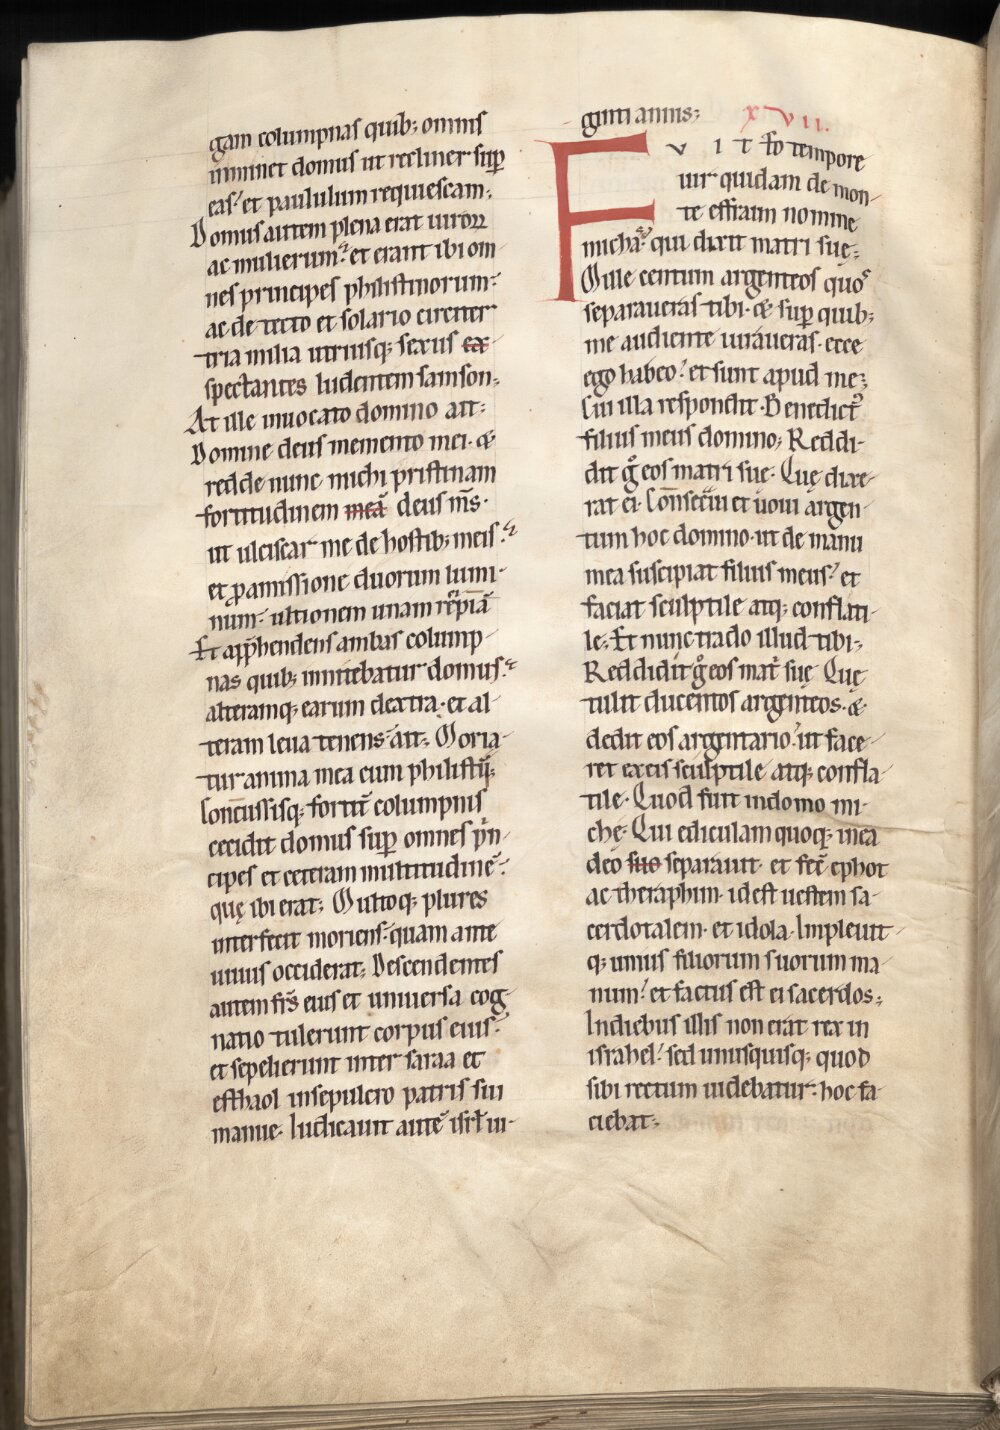 gam columpnas quib; omnis
imminet domus ut recliner sup̱
eas; et paululum requiescam;
Domus autem plena erat uiroꝝ
ac mulierum; et erant ibi om
nes principes philistinorum;
ac de tecto et solario circiter
tria milia utriusq; sexus ex
spectantes ludentem samson;
At ille inuocato domino ait;
Domine deus memento mei· &
redde nunc michi pristinam
fortitudinem meā deus m̄s·
ut ulciscar me de hostib; meis;
et ꝓ amissione duorum lumi-
num· ultionem unam rēpiā
Et app̄hendens ambas colump-
nas quib; innitebatur domus;
alteramq; earum dextra· et al-
teram leua tenens· ait; Moria-
tur anima mea cum philistīj;
Concussisq; fortit̄ columpnis
cecidit domus sup̱ omnes prin-
cipes et ceteram multitudinē;
quę ibi erat; Multoq; plures
interfecit moriens· quam ante
uiuus occiderat; Descendentes
autem fr̄s eius et uniuersa cog-
natio tulerunt corpus eius;
et sepelierunt inter saraa et
esthaol in sepulcro patris sui
manue· Iudicauit autē isrł ui-
ginti annis; xvii.
FVIT eo tempore
uir quidam de mon-
te effraim nomine
micha; qui dixit matri suę;
Mille centum argenteos quos
separaueras tibi· & sup̱ quib;
me audiente iuraueras· ecce
ego habeo; et sunt apud me;
Cui illa respondit· Benedict᷒
filius meus domino; Reddi-
dit g̊ eos matri suę· Quę dixe-
rat ei· Consec̄ui et uoui argen-
tum hoc domino· ut de manu
mea suscipiat filius meus; et
faciat sculptile atq; conflati-
le; Et nunc trado illud tibi;
Reddidit g̊ eos mat̄ suę Quę
tulit ducentos argenteos· &
dedit eos argentario; ut face-
ret ex eis sculptile atq; confla-
tile· Quod fuit in domo mi-
chę· Qui ediculam quoq; in ea
deo suo separauit· et fec̄ ephot
ac theraphim· id est uestem sa-
cerdotalem· et idola· Impleuit-
q; unius filiorum suorum ma-
num; et factus est ei sacerdos;
In diebus illis non erat rex in
israhel; sed unusquisq; quod
sibi rectum uidebatur· hoc fa-
ciebat;